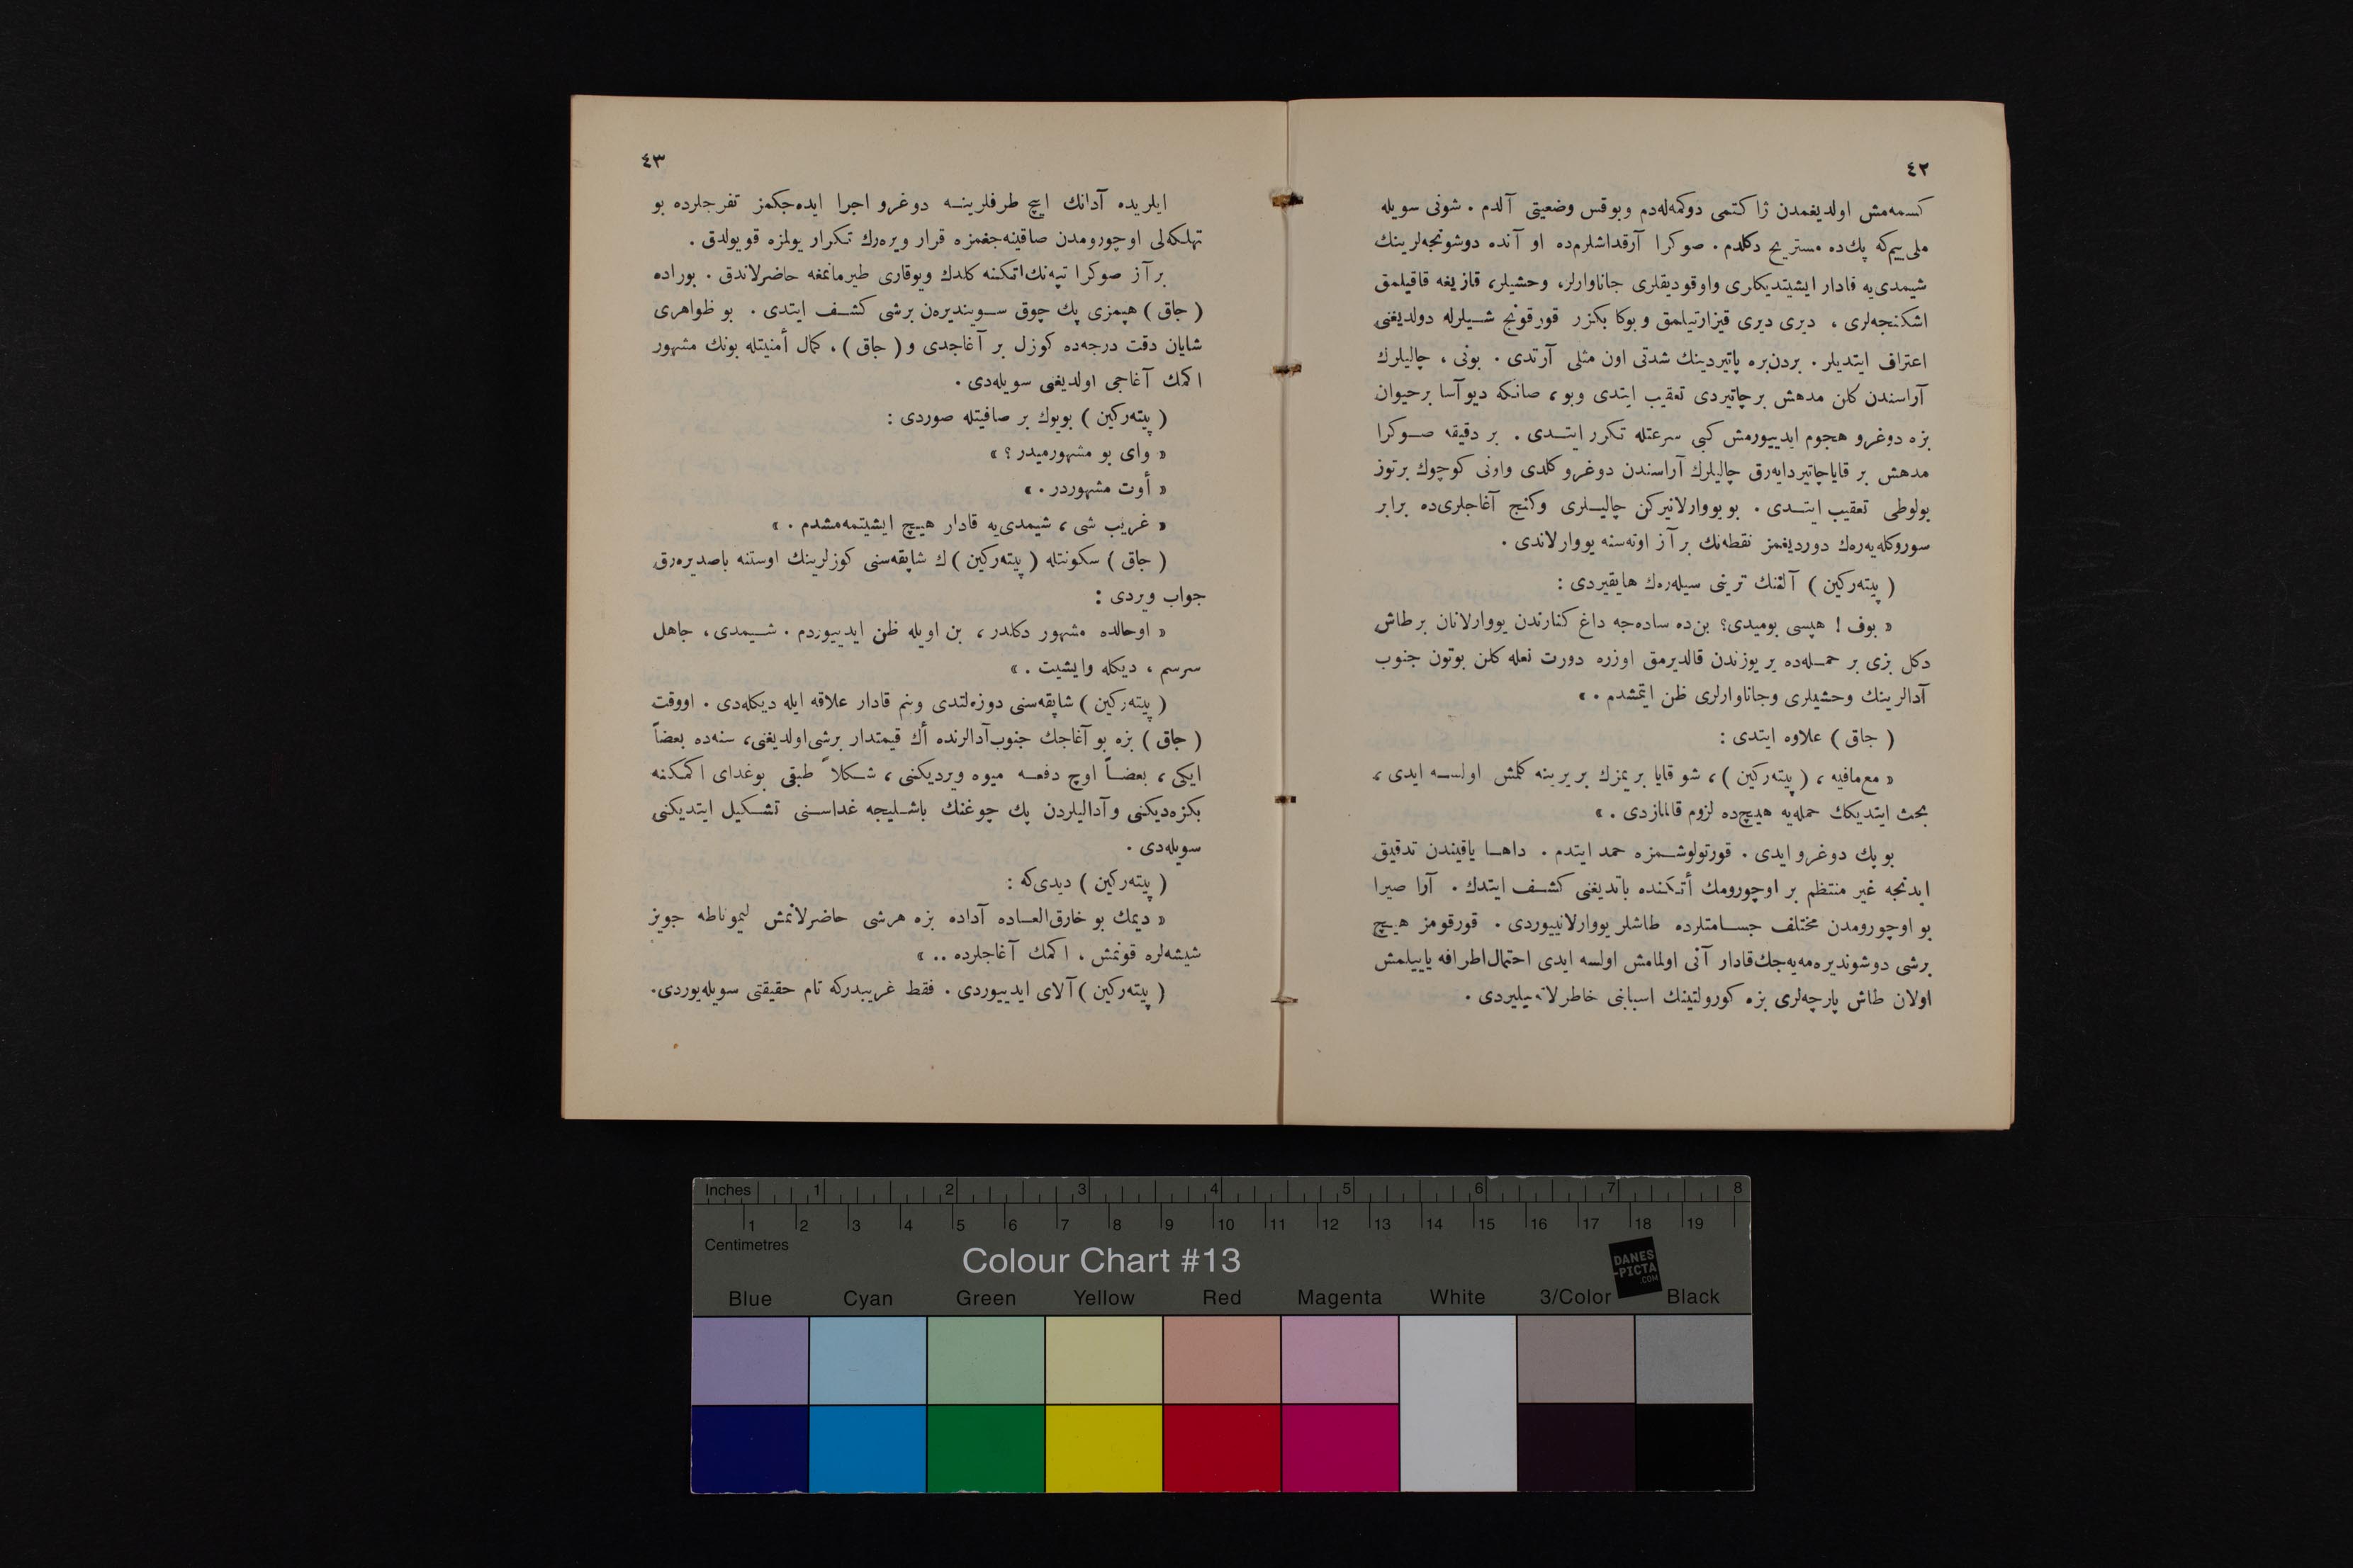 ٤٢
كسمه‌مش اولديغمدن ژاكتمى دوكمه‌له‌دم وبوقس وضعيتى آلدم . شونى سويله
ملى‌ييم‌كه پك‌ده مستريح دكلدم . صوكرا آرقداشلرم‌ده او آنده دوشونجه‌لرينك
شيمدى‌يه قادار ايشيتديكلرى واوقوديقلرى جاناوارلر، وحشيلر، قازيغه قاقيلمق
اشكنجه‌لرى ، ديرى ديرى قيزارتيلمق و بوكا بكزر قورقونج شيلرله دولديغنى
اعتراف ايتديلر . بردن‌بره پاتيردينك شدتى اون مثلى آرتدى . بونى ، چاليلرك
آراسندن كلن مدهش برچاتيردى تعقيب ايتدى وبو ، صانكه ديوآسا برحيوان
بزه دوغرو هجوم ايدييورمش كبى سرعتله تكرر ايتدى . بر دقيقه صوكرا
مدهش بر قاياچاتيردايه‌رق چاليلرك آراسندن دوغرو كلدى واونى كوچوك برتوز
بولوطى تعقيب ايتدى . بو يووارلانيركن چاليلرى وكنج آغاجلرى‌ده برابر
سوروكله‌يه‌رك دورديغمز نقطه‌نك بر آز اوته‌سنه يووارلاندى .
( پيته‌ركين ) آلنك ترينى سيله‌رك هايقيردى :
« بوف ! هپسى بوميدى؟ بن‌ده ساده‌جه داغ كنارندن يووارلانان برطاش
دكل بزى بر حمله‌ده ير يوزندن قالديرمق اوزره دورت نعله كلن بوتون جنوب
آدالرينك وحشيلرى وجاناوارلرى ظن ايتمشدم . »
( جاق ) علاوه ايتدى :
« مع‌مافيه ، ( پيته‌ركين ) ، شو قايا بريمزك بر يرينه كلمش اولسه ايدى ،
بحث ايتديكك حمله‌يه هيچ‌ده لزوم قالمازدى . »
بو پك دوغرو ايدى . قورتولوشمزه حمد ايتدم . داها ياقيندن تدقيق
ايدنجه غير منتظم بر اوچورومك أتكنده ياتديغنى كشف ايتدك . آرا صيرا
بو اوچورومدن مختلف جسامتلرده طاشلر يووارلانييوردى . قورقومز هيچ
برشى دوشونديره‌مه‌يه‌جك‌قادار آنى اولمامش اولسه ايدى احتمال‌اطرافه ياييلمش
اولان طاش پارچه‌لرى بزه كورولتينك اسبابنى خاطرلاته‌بيليردى .
٤٣
ايلريده آدانك ايچ طرفلرينه دوغرو اجرا ايده‌جكمز تفرجلرده بو
تهلكه‌لى اوچورومدن صاقينه‌جغمزه قرار ويره‌رك تكرار يولمزه قويولدق .
بر آز صوكرا تپه‌نك‌اتكنه كلدك ويوقارى طيرمانمغه حاضرلاندق . بوراده
( جاق ) هپمزى پك چوق سوينديره‌ن برشى كشف ايتدى . بو ظواهرى
شايان دقت درجه‌ده كوزل بر آغاجدى و ( جاق ) ، كمال أمنيتله بونك مشهور
اكمك آغاجى اولديغى سويله‌دى .
( پيته‌ركين ) بويوك بر صافيتله صوردى :
« واى بو مشهورميدر ؟ »
« أوت مشهوردر . »
« غريب شى ، شيمدى‌يه قادار هيچ ايشيتمه‌مشدم . »
( جاق ) سكونتله ( پيته‌ركين ) ك شاپقه‌سنى كوزلرينك اوستنه باصديره‌رق
جواب ويردى :
« اوحالده مشهور دكلدر ، بن اويله ظن ايدييوردم . شيمدى ، جاهل
سرسم ، ديكله وايشيت . »
( پيته‌ركين ) شاپقه‌سنى دوزه‌لتدى وبنم قادار علاقه ايله ديكله‌دى . اووقت
( جاق ) بزه بو آغاجك جنوب‌آدالرنده أك قيمتدار برشى‌اولديغنى، سنه‌ده بعضاً
ايكى ، بعضاً اوچ دفعه ميوه ويرديكنى ، شكلاً طبقى بوغداى اكمكنه
بكزه‌ديكنى و آداليلردن پك چوغنك باشليجه غداسنى تشكيل ايتديكنى
سويله‌دى .
( پيته‌ركين ) ديدى‌كه :
« ديمك بو خارق‌العاده آداده بزه هرشى حاضرلانمش ليموناطه جويز
شيشه‌لره قونمش ، اكمك آغاجلرده .. »
( پيته‌ركين ) آلاى ايدييوردى . فقط غريبدركه تام حقيقتى سويله‌يوردى.
Inches 1 2 3 4 5 6 7 8
1 2 3 4 5 6 7 8 9 10 11 12 13 14 15 16 17 18 19
Centimetres
Colour Chart #13
DANES
-PICTA
.COM
Blue Cyan Green Yellow Red Magenta White 3/Color Black